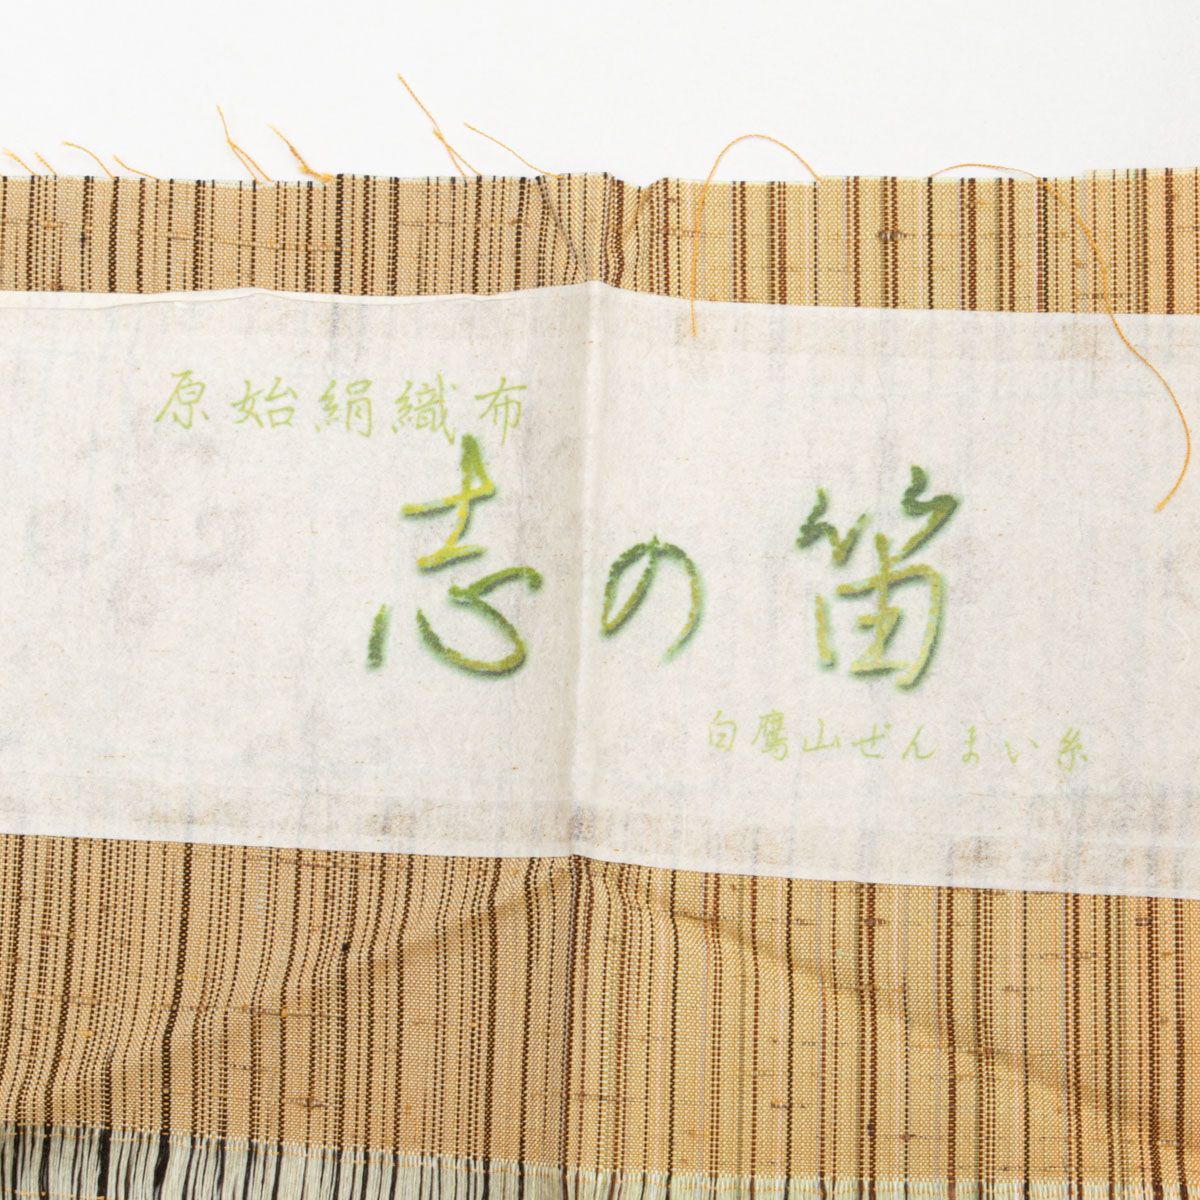 原始絹織布
志の笛
白鷹山ぜんまい糸